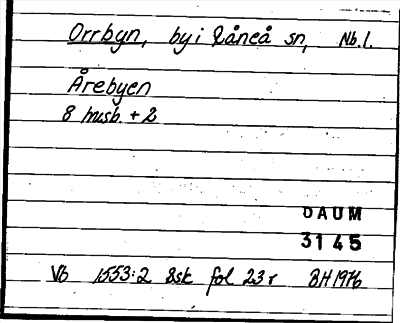 Orrbyn, by i Råneå sn, Nb. l.
Årebyen
8 husb. + 2
DAUM
3145
Vb 1553:2 Bsk fol 23 r BH 1976